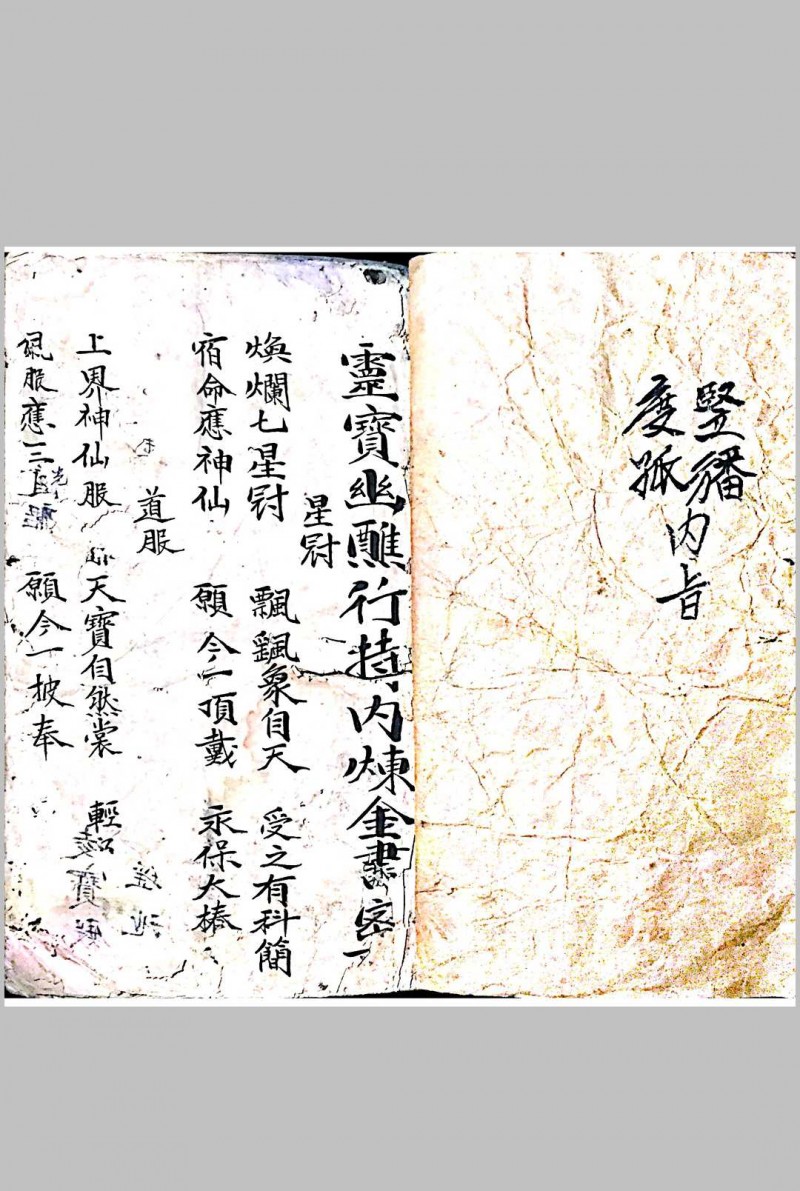 豎旛
度孤
内旨
靈寶幽醮行持内煉金書密
星冠
煥爛七星冠 飄飄象自天 受之有科簡
宿命應神仙 願今一頂戴 永保大椿
道服
上界神仙服 天寶自然裳 輕
佩服應三 願今一披奉